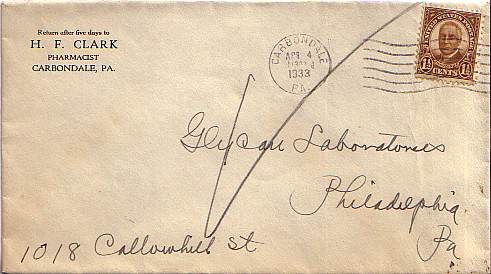 Return after five days to
H. F. CLARK
PHARMACIST
CARBONDALE, PA.
CARBONDALE
APR 4
1933
PA.
UNITED STATES POSTAGE
1½ CENTS 1½
Glycan Laboratories
Philadelphia
Pa
1018 Callowhill St